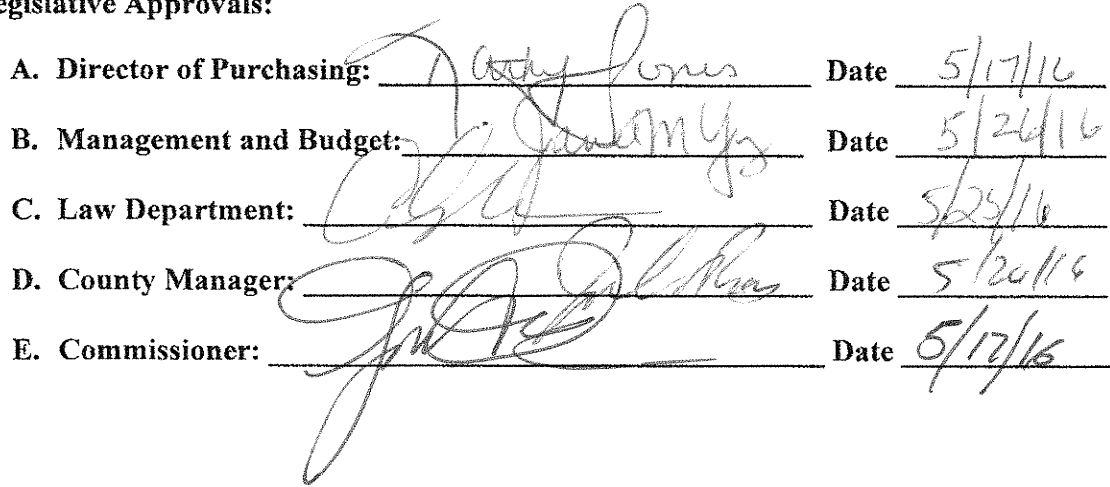 egislative Approvals:
A. Director of Purchasing: Jones Date 5/17/16
B. Management and Budget: Date 5/26/16
C. Law Department: Date 5/25/16
D. County Manager: Date 5/26/16
E. Commissioner: Date 5/17/16